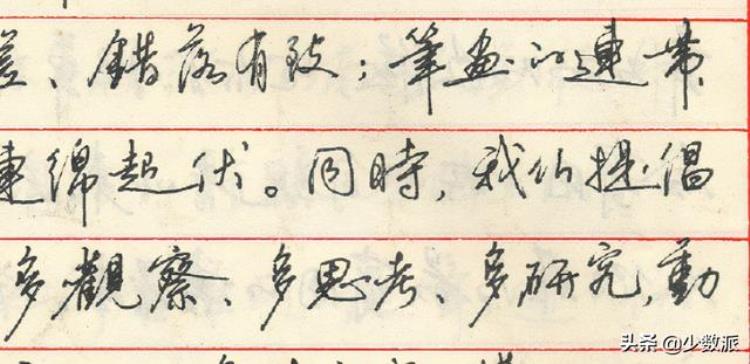 差、錯落有致；筆畫的連帶
連綿起伏。同時，我们提倡
多觀察、多思考、多研究，動
头条 @少数派